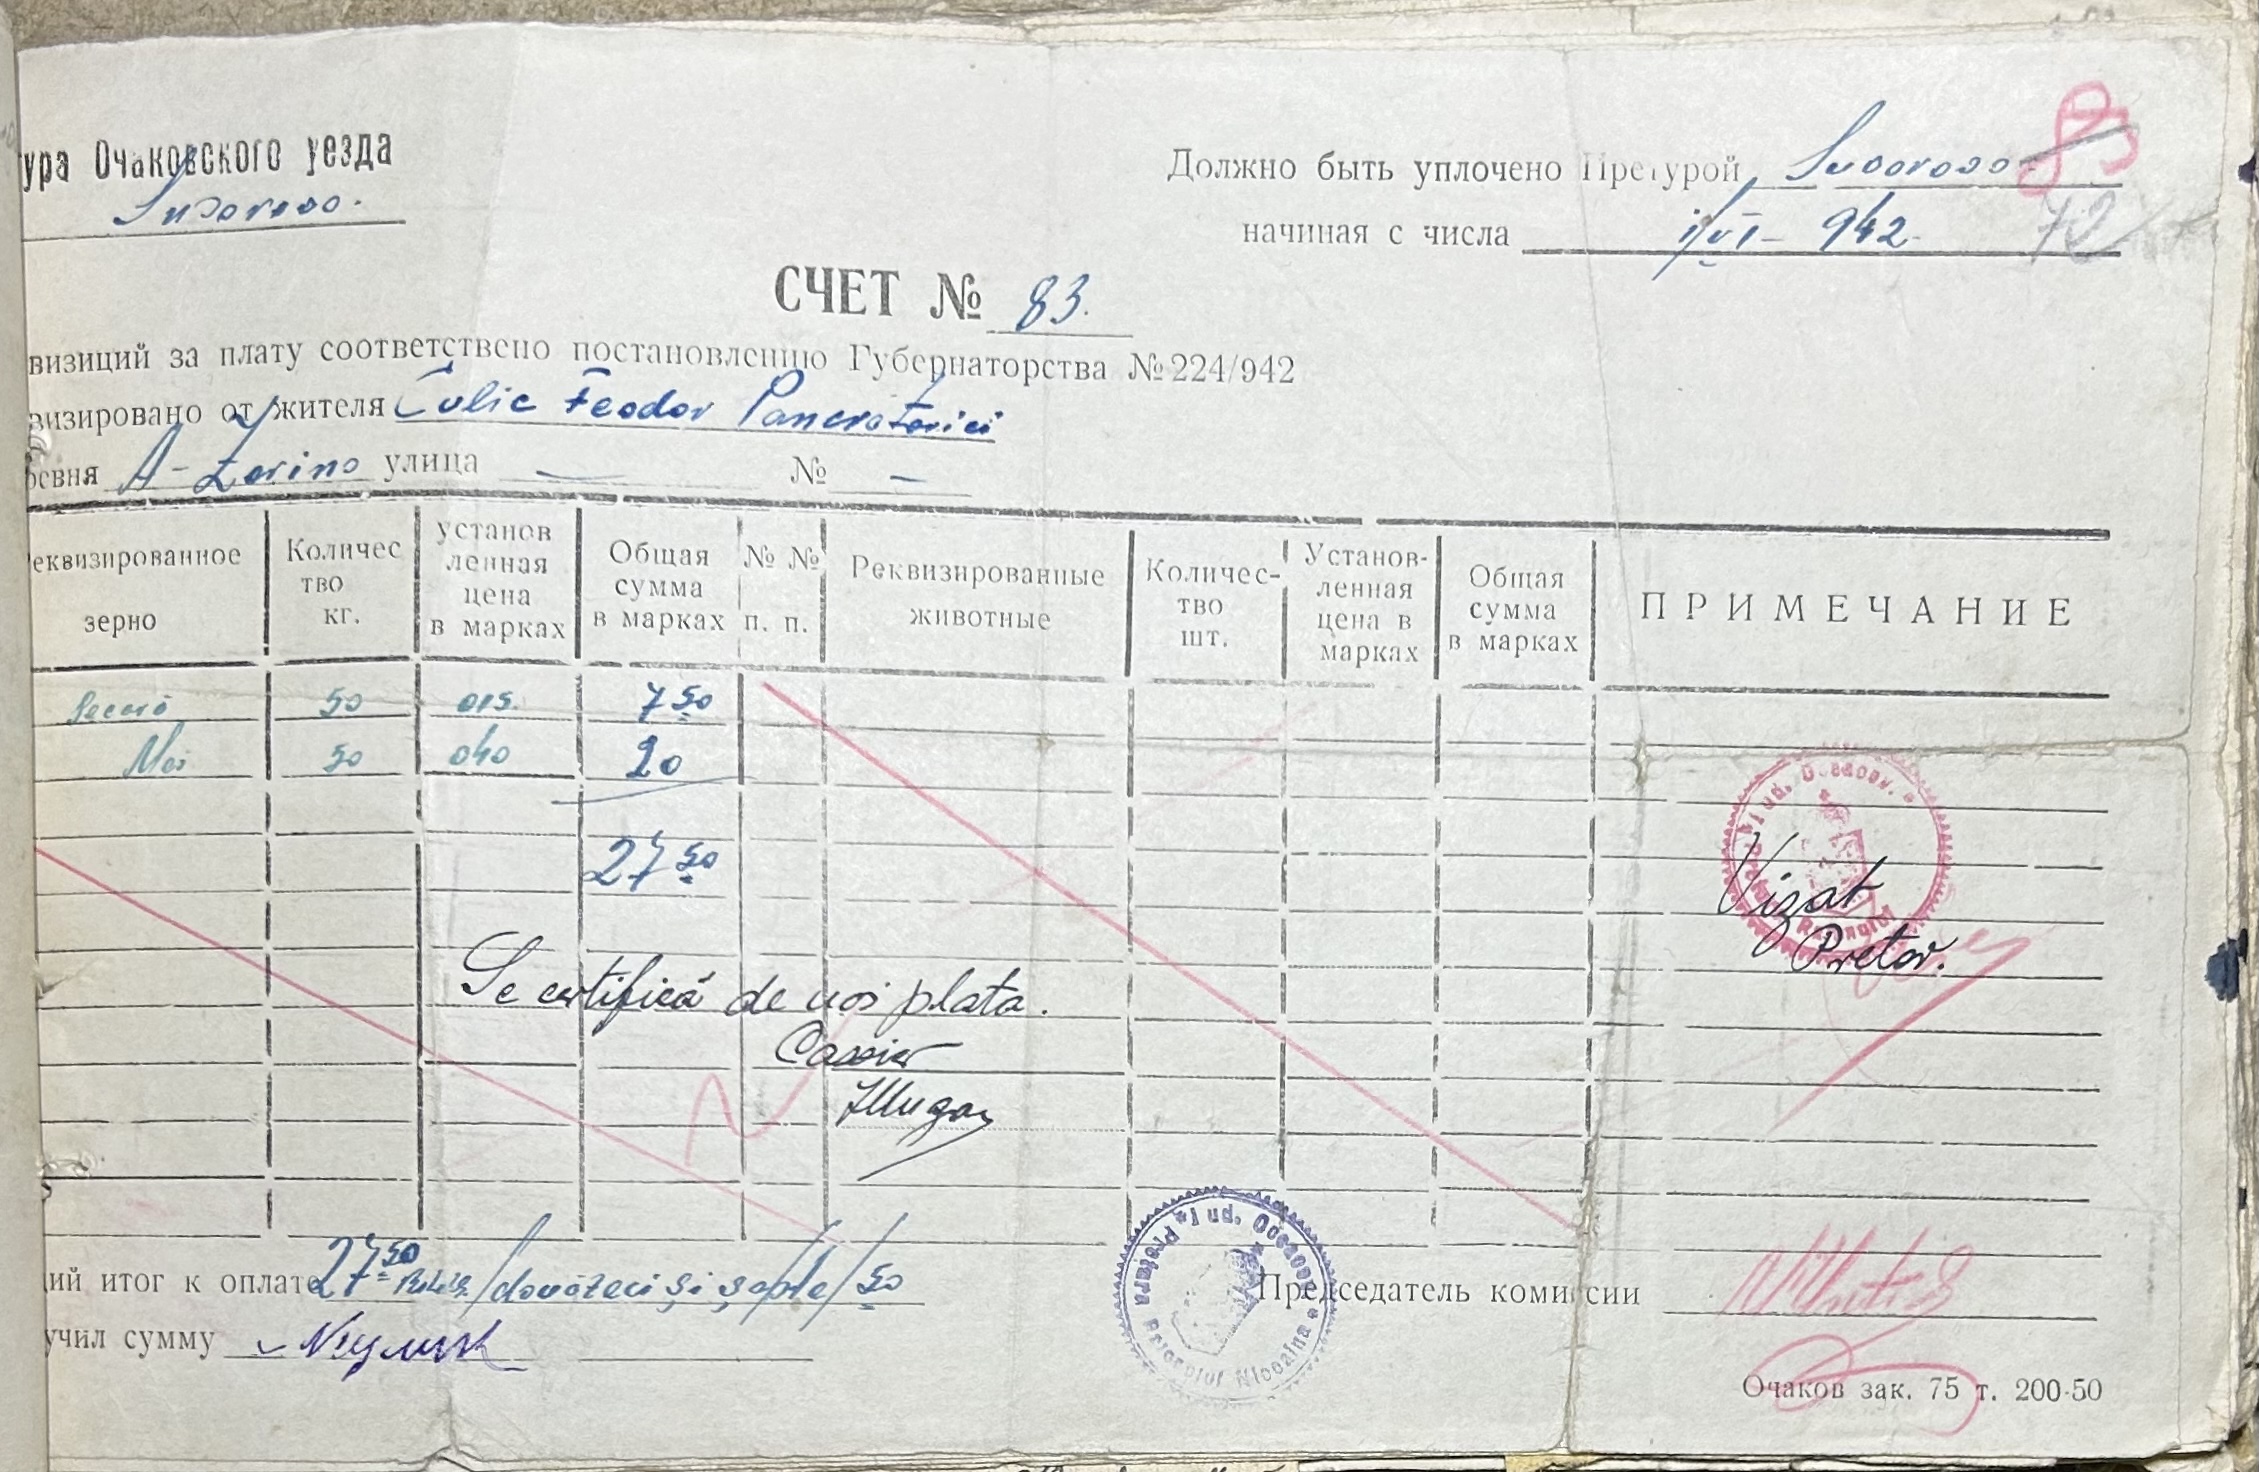 ура Очаковского уезда
Suvorovo.
Должно быть уплочено Претурой Suvorovo
83
начиная с числа 1/VI- 942-
72
СЧЕТ № 83.
визиций за плату соответствено постановлению Губернаторства № 224/942
визировано от жителя Culic Feodor Pancratovici
евня A-Zorino улица — № —
еквизированное зерно
Количес тво кг.
установ ленная цена в марках
Общая сумма в марках
№ № п. п.
Реквизированные животные
Количес- тво шт.
Установ- ленная цена в марках
Общая сумма в марках
ПРИМЕЧАНИЕ
Secară 50 015 7 50
50 040 20
27 50
Vizat
Pretor.
Se certifică de noi plata.
Casier
ий итог к оплате 27 50 /douăzeci și șapte/50
Председатель комиссии
учил сумму
Jud. Oceacov
Pretura
Очаков зак. 75 т. 200-50